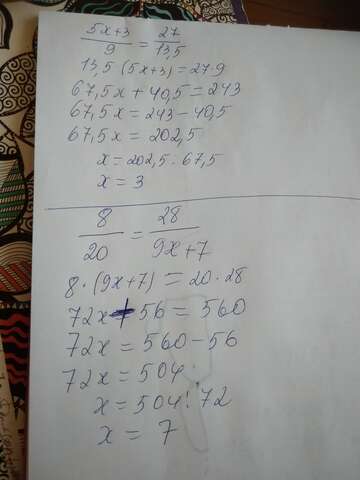 5x+3/9 = 27/13,5
13,5 (5x+3) = 27·9
67,5x + 40,5 = 243
67,5x = 243 - 40,5
67,5x = 202,5
x = 202,5 · 67,5
x = 3
8/20 = 28/9x+7
8·(9x+7) = 20·28
72x + 56 = 560
72x = 560 - 56
72x = 504
x = 504 : 72
x = 7